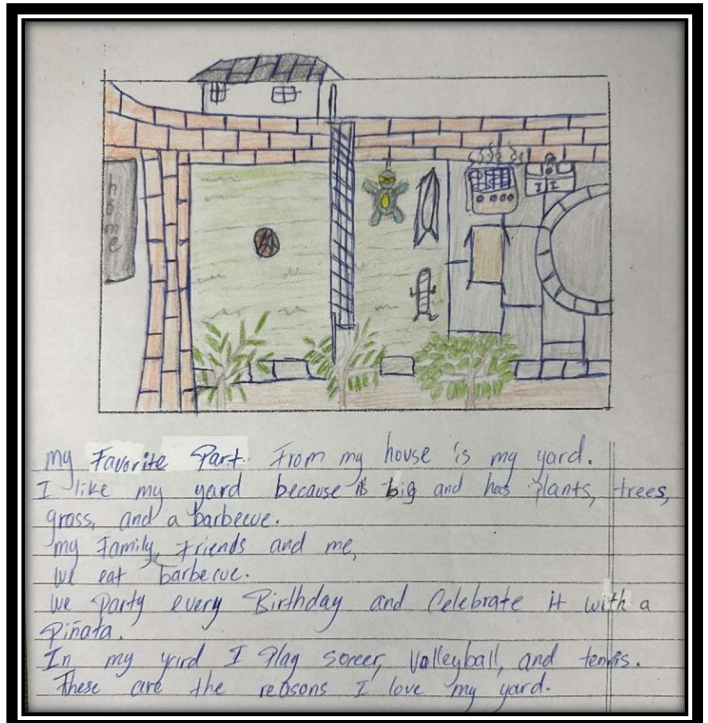 home
my Favorite Part From my house is my yard.
I like my yard because is big and has plants, trees,
grass, and a barbecue.
my Family, Friends and me,
we eat barbecue.
we Party every Birthday and Celebrate it with a
Piñata.
In my yard I Play soccer, Volleyball, and tennis.
These are the reasons I love my yard.